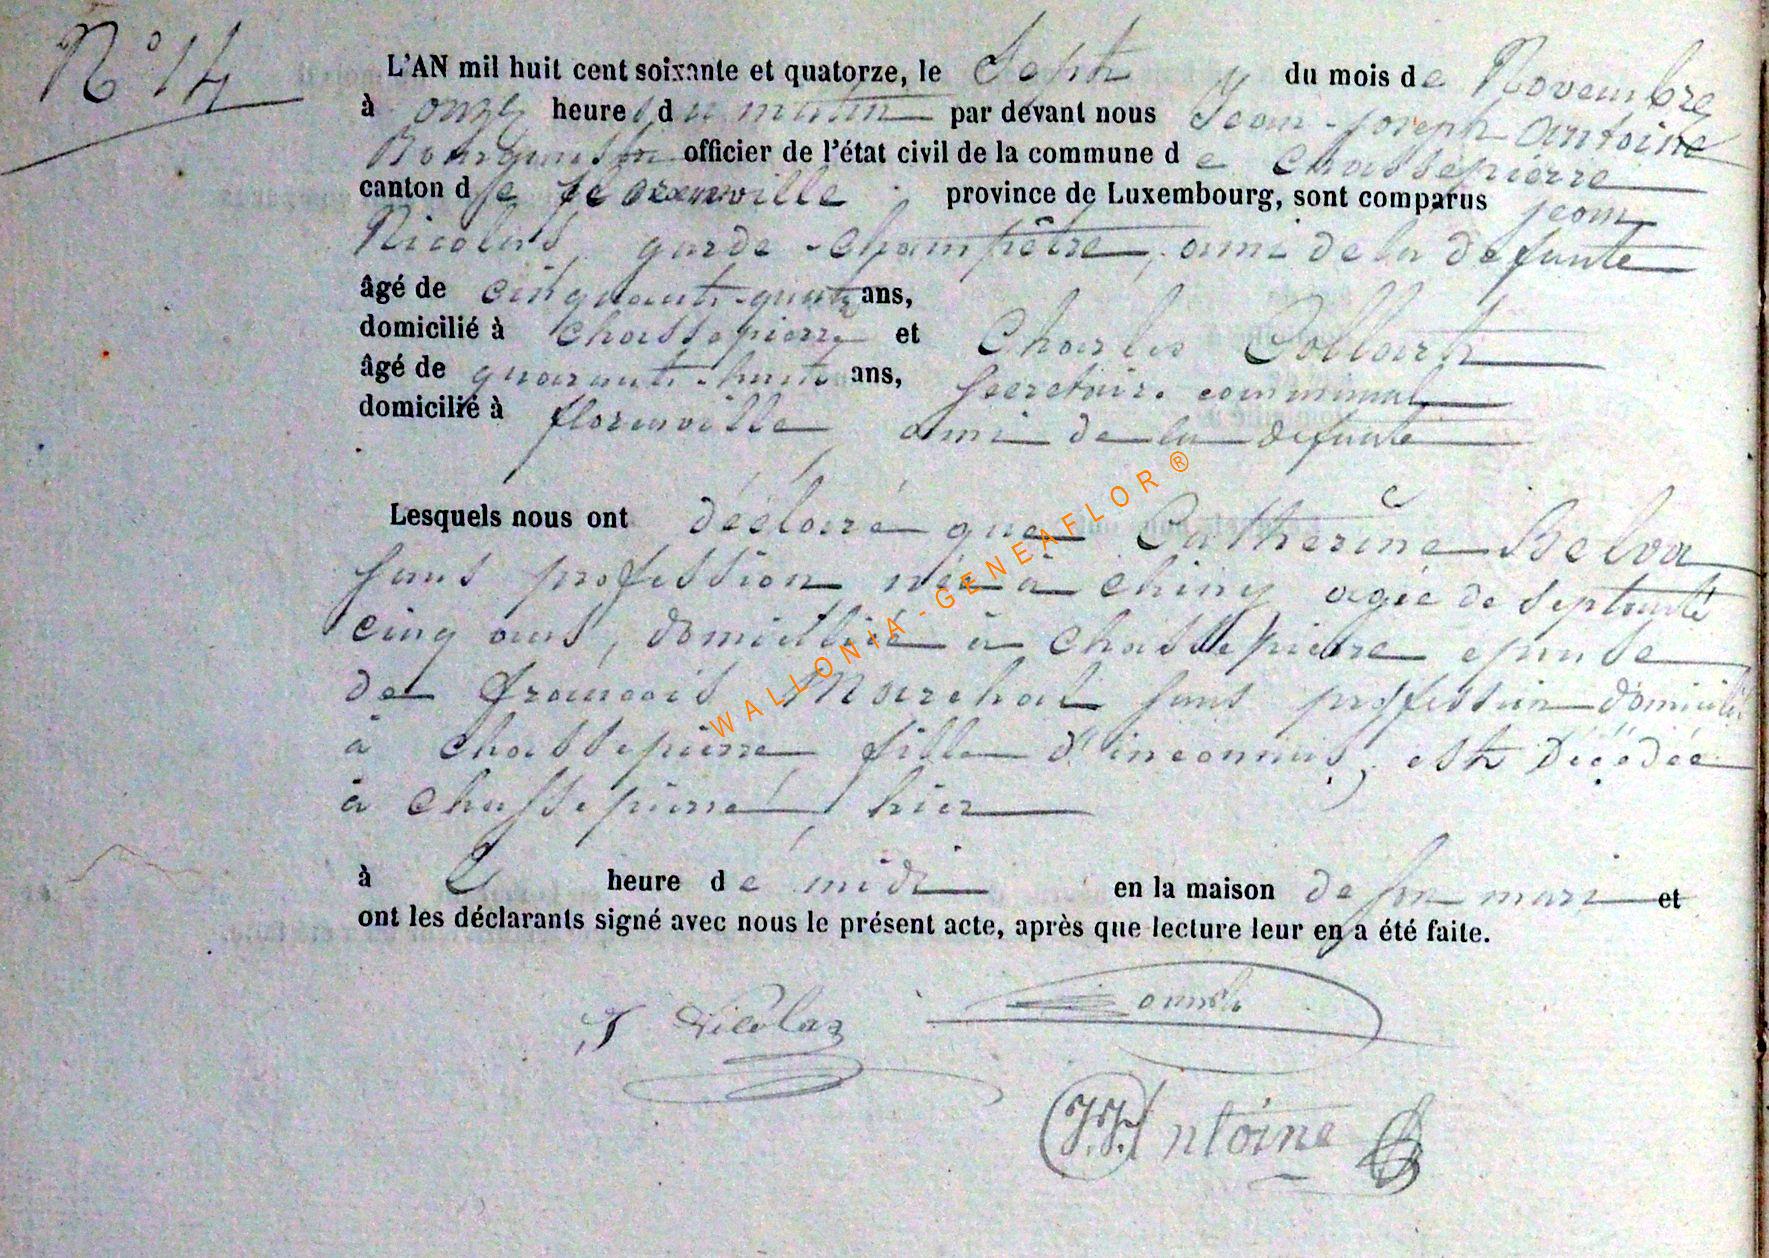 N° 14
L'AN mil huit cent soixante et quatorze, le Sept du mois de Novembre
à onze heures du matin par devant nous Jean-Joseph Antoine
Bourgmestre officier de l'état civil de la commune de Chassepierre
canton de florenville province de Luxembourg, sont comparus jean
Nicolas, garde-champêtre, ami de la defunte
âgé de cinquante-quatre ans,
domicilié à Chassepierre et Charles Collart
âgé de quarante-huit ans, secretaire communal
domicilié à florenville, ami de la defunte
Lesquels nous ont déclaré que Catherine Belva
sans profession née à chiny agée de septante
cinq ans, domiciliée à Chassepierre epouse
de françois Marchal sans profession domicilié
à chassepierre, fille d'inconnus, est Décédée
à chassepierre, hier
à heure de midi en la maison de son mari et
ont les déclarants signé avec nous le présent acte, après que lecture leur en a été faite.
J Nicolas
J.J. Antoine
WALLONIA-GENEAFLOR®